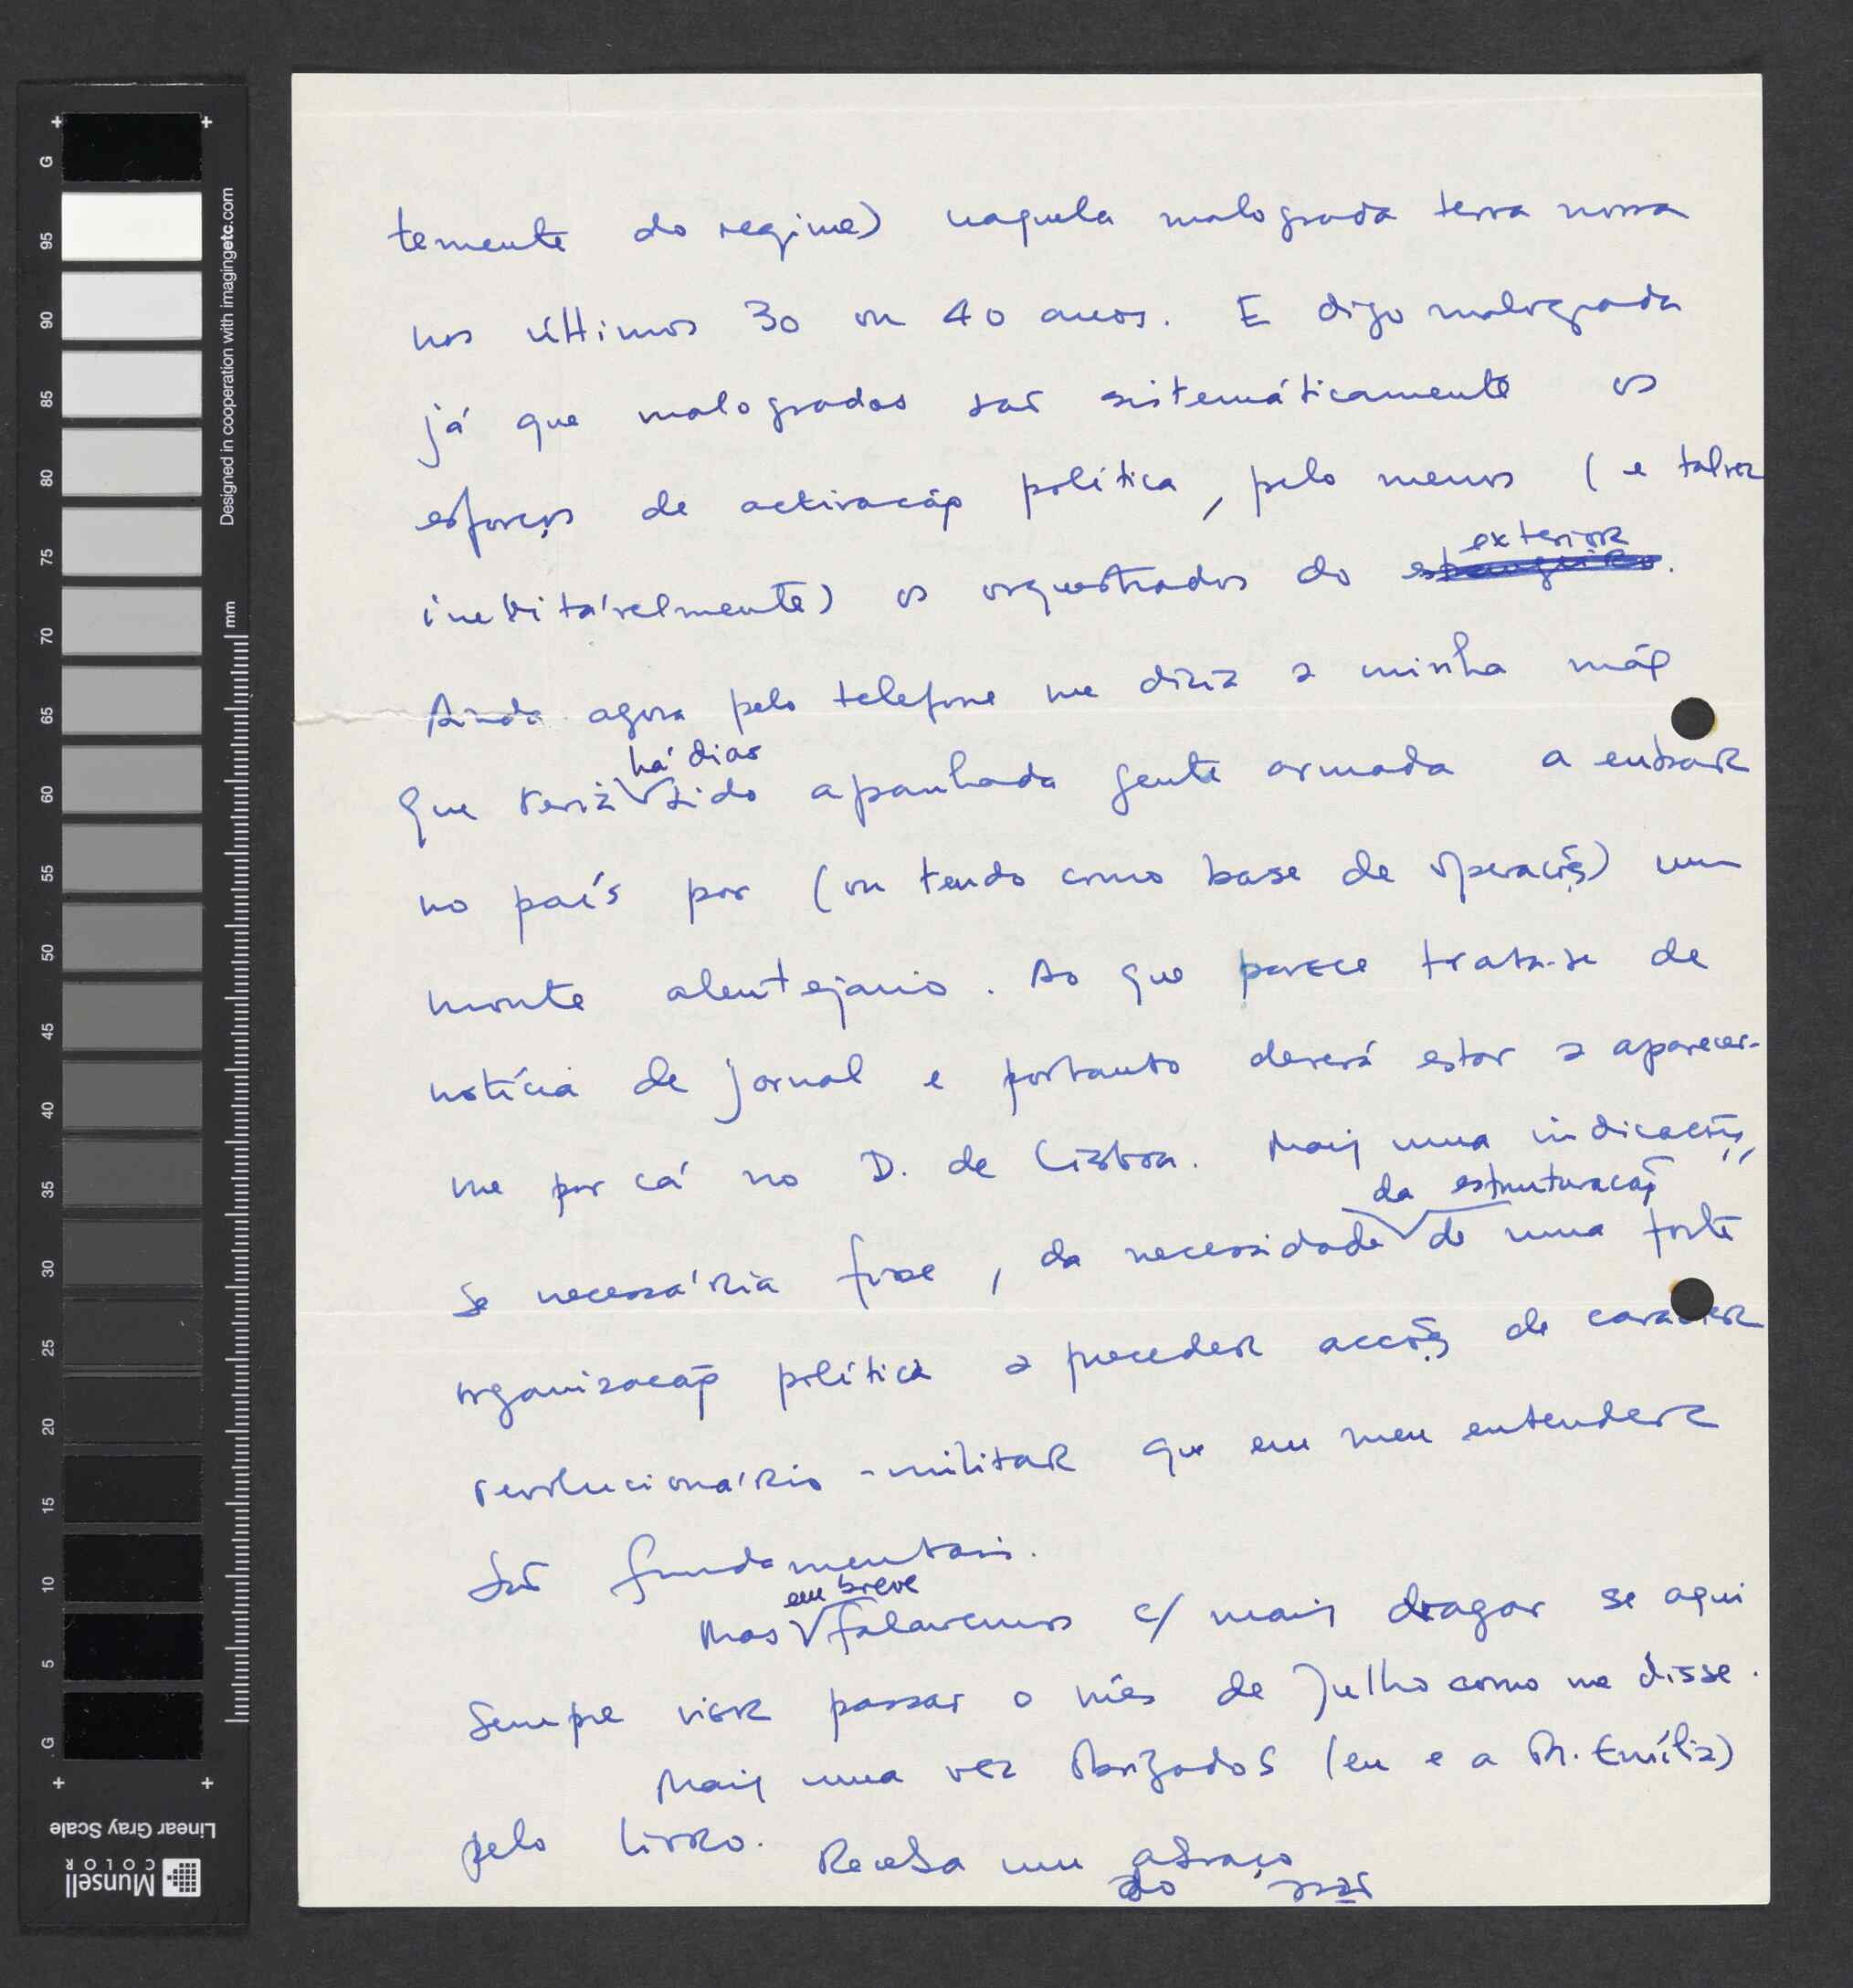 temente do regime) naquela malograda terra nossa
nos últimos 30 ou 40 anos. E digo malograda
já que malogrados são sistemáticamente os
esforços de activação política, pelo menos (e talvez
exterior
inevitávelmente) os orquestrados do estrangeiro.
Ainda agora pelo telefone me dizia a minha mãe
há dias
que teria sido apanhada gente armada a entrar
no país por (ou tendo como base de operações) um
monte alentejano. Ao que parece trata-se de
notícia de jornal e portanto deverá estar a aparecer-
me por cá no D. de Lisboa. Mais uma indicação,
da estruturação
se necessária fosse, da necessidade de uma forte
organização política a preceder acções de carácter
revolucionário-militar que em meu entender
são fundamentais.
em breve
Mas falaremos c/ mais dragar se aqui
sempre vier passar o mês de Julho como me disse.
Mais uma vez obrigados (eu e a M. Emília)
pelo livro. Receba um abraço
do
Designed in cooperation with imagingetc.com
mm
G
95
90
85
80
75
70
65
60
55
50
45
40
35
30
25
20
15
10
5
G
Linear Gray Scale
Munsell
COLOR